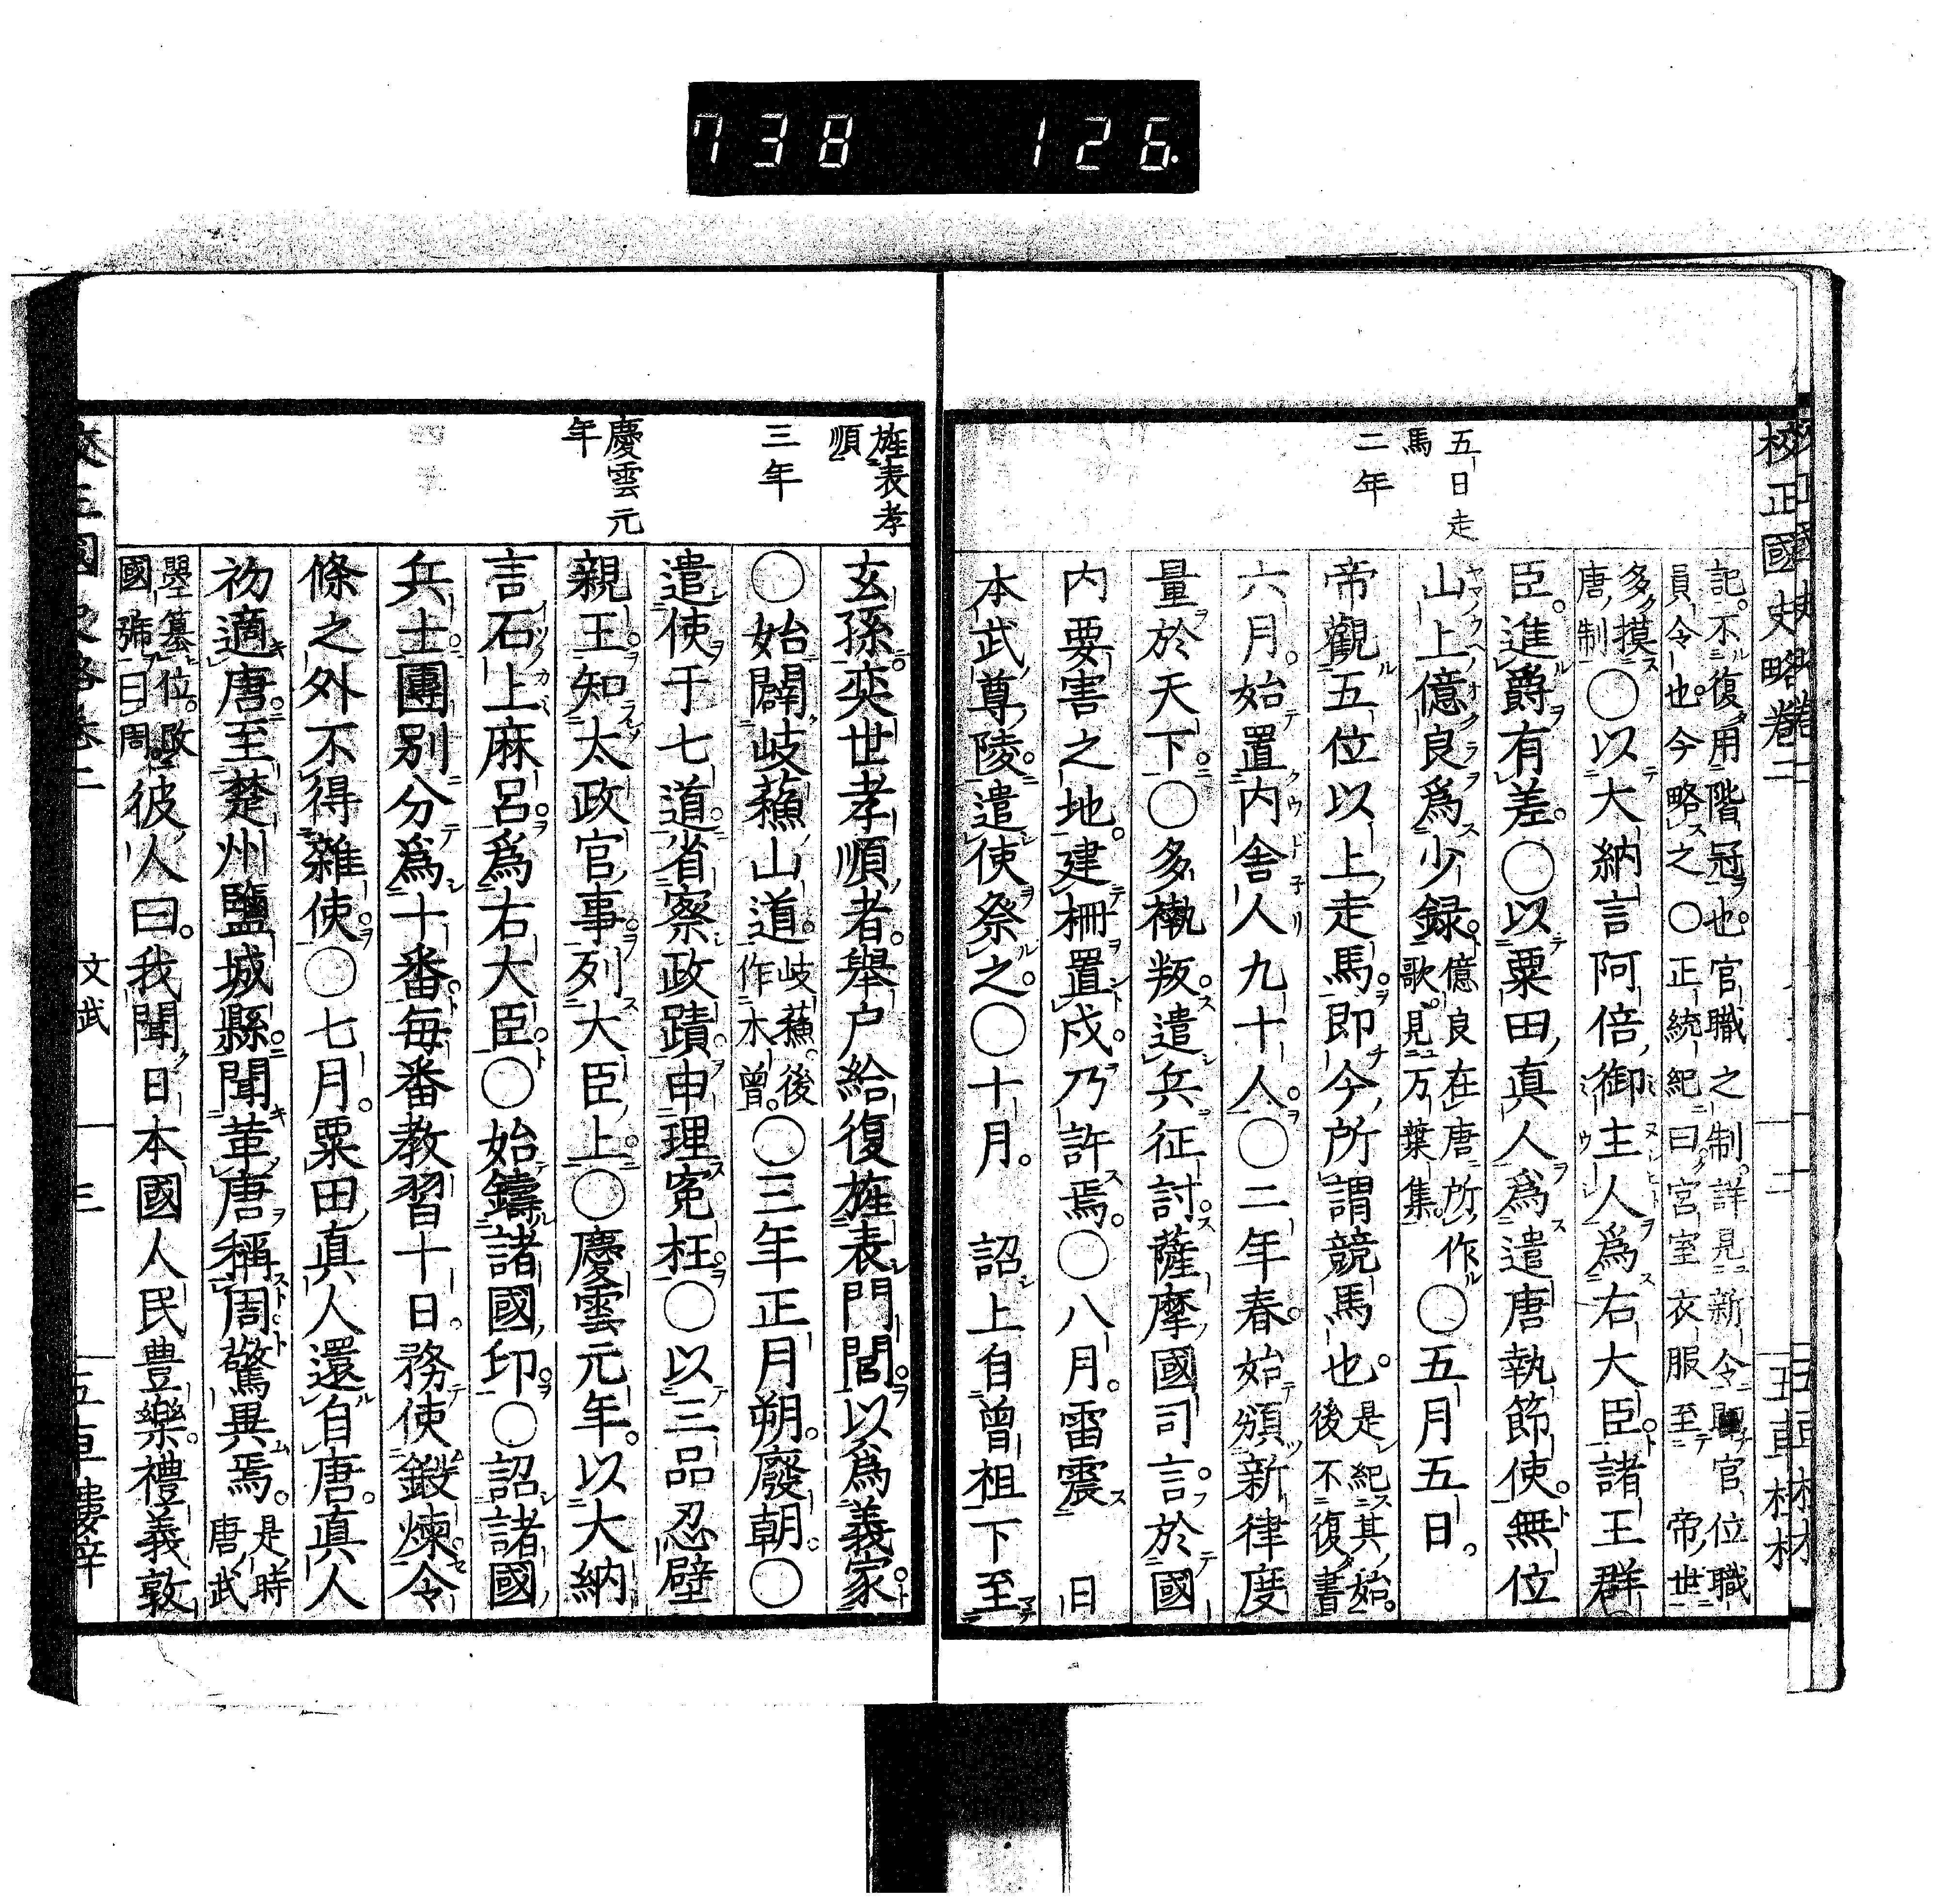 738 126.
校正國史略卷二 二 五車樓梓
五日走馬
二年
記。不復用階冠也。官職之制。詳見新令。即官位職
員令也。今略之。○正統紀曰。宮室衣服至 帝世
多摸唐制○以大納言阿倍御主人爲右大臣。諸王群
臣。進爵有差。○以粟田真人爲遣唐執節使。無位
山上億良爲少録。億良在唐所作歌。見万葉集。○五月五日。
帝觀五位以上走馬。即今所謂競馬也。是紀其始。後不復書
六月。始置内舎人九十人。○二年春。始頒新律度
量於天下。○多褹叛。遣兵征討。薩摩國司言。於國
内要害之地。建柵置戍。乃許焉。○八月。雷震 日
本武尊陵。遣使祭之。○十月。 詔上自曾祖下至
旌表孝順
三年
慶雲元年
玄孫。奕世孝順者。舉户給復旌表門閭。以爲義家。
○始闢岐蘓山道。岐蘓。後作木曾。○三年正月朔。廢朝。○
遣使于七道。省察政蹟。申理寃枉。○以三品忍壁
親王。知太政官事。列大臣上。○慶雲元年。以大納
言石上麻呂爲右大臣。○始鑄諸國印。○詔諸國
兵士。團別分爲十番。毎番教習十日。務使鍜煉。令
條之外不得雜使。○七月。粟田真人還自唐。真人
初適唐。至楚州鹽城縣。聞革唐稱周。驚異焉。是時唐武
曌簒位。改國號曰周。彼人曰。我聞日本國人民豊樂。禮義敦
校正國史略卷二 文武 三 五車樓梓